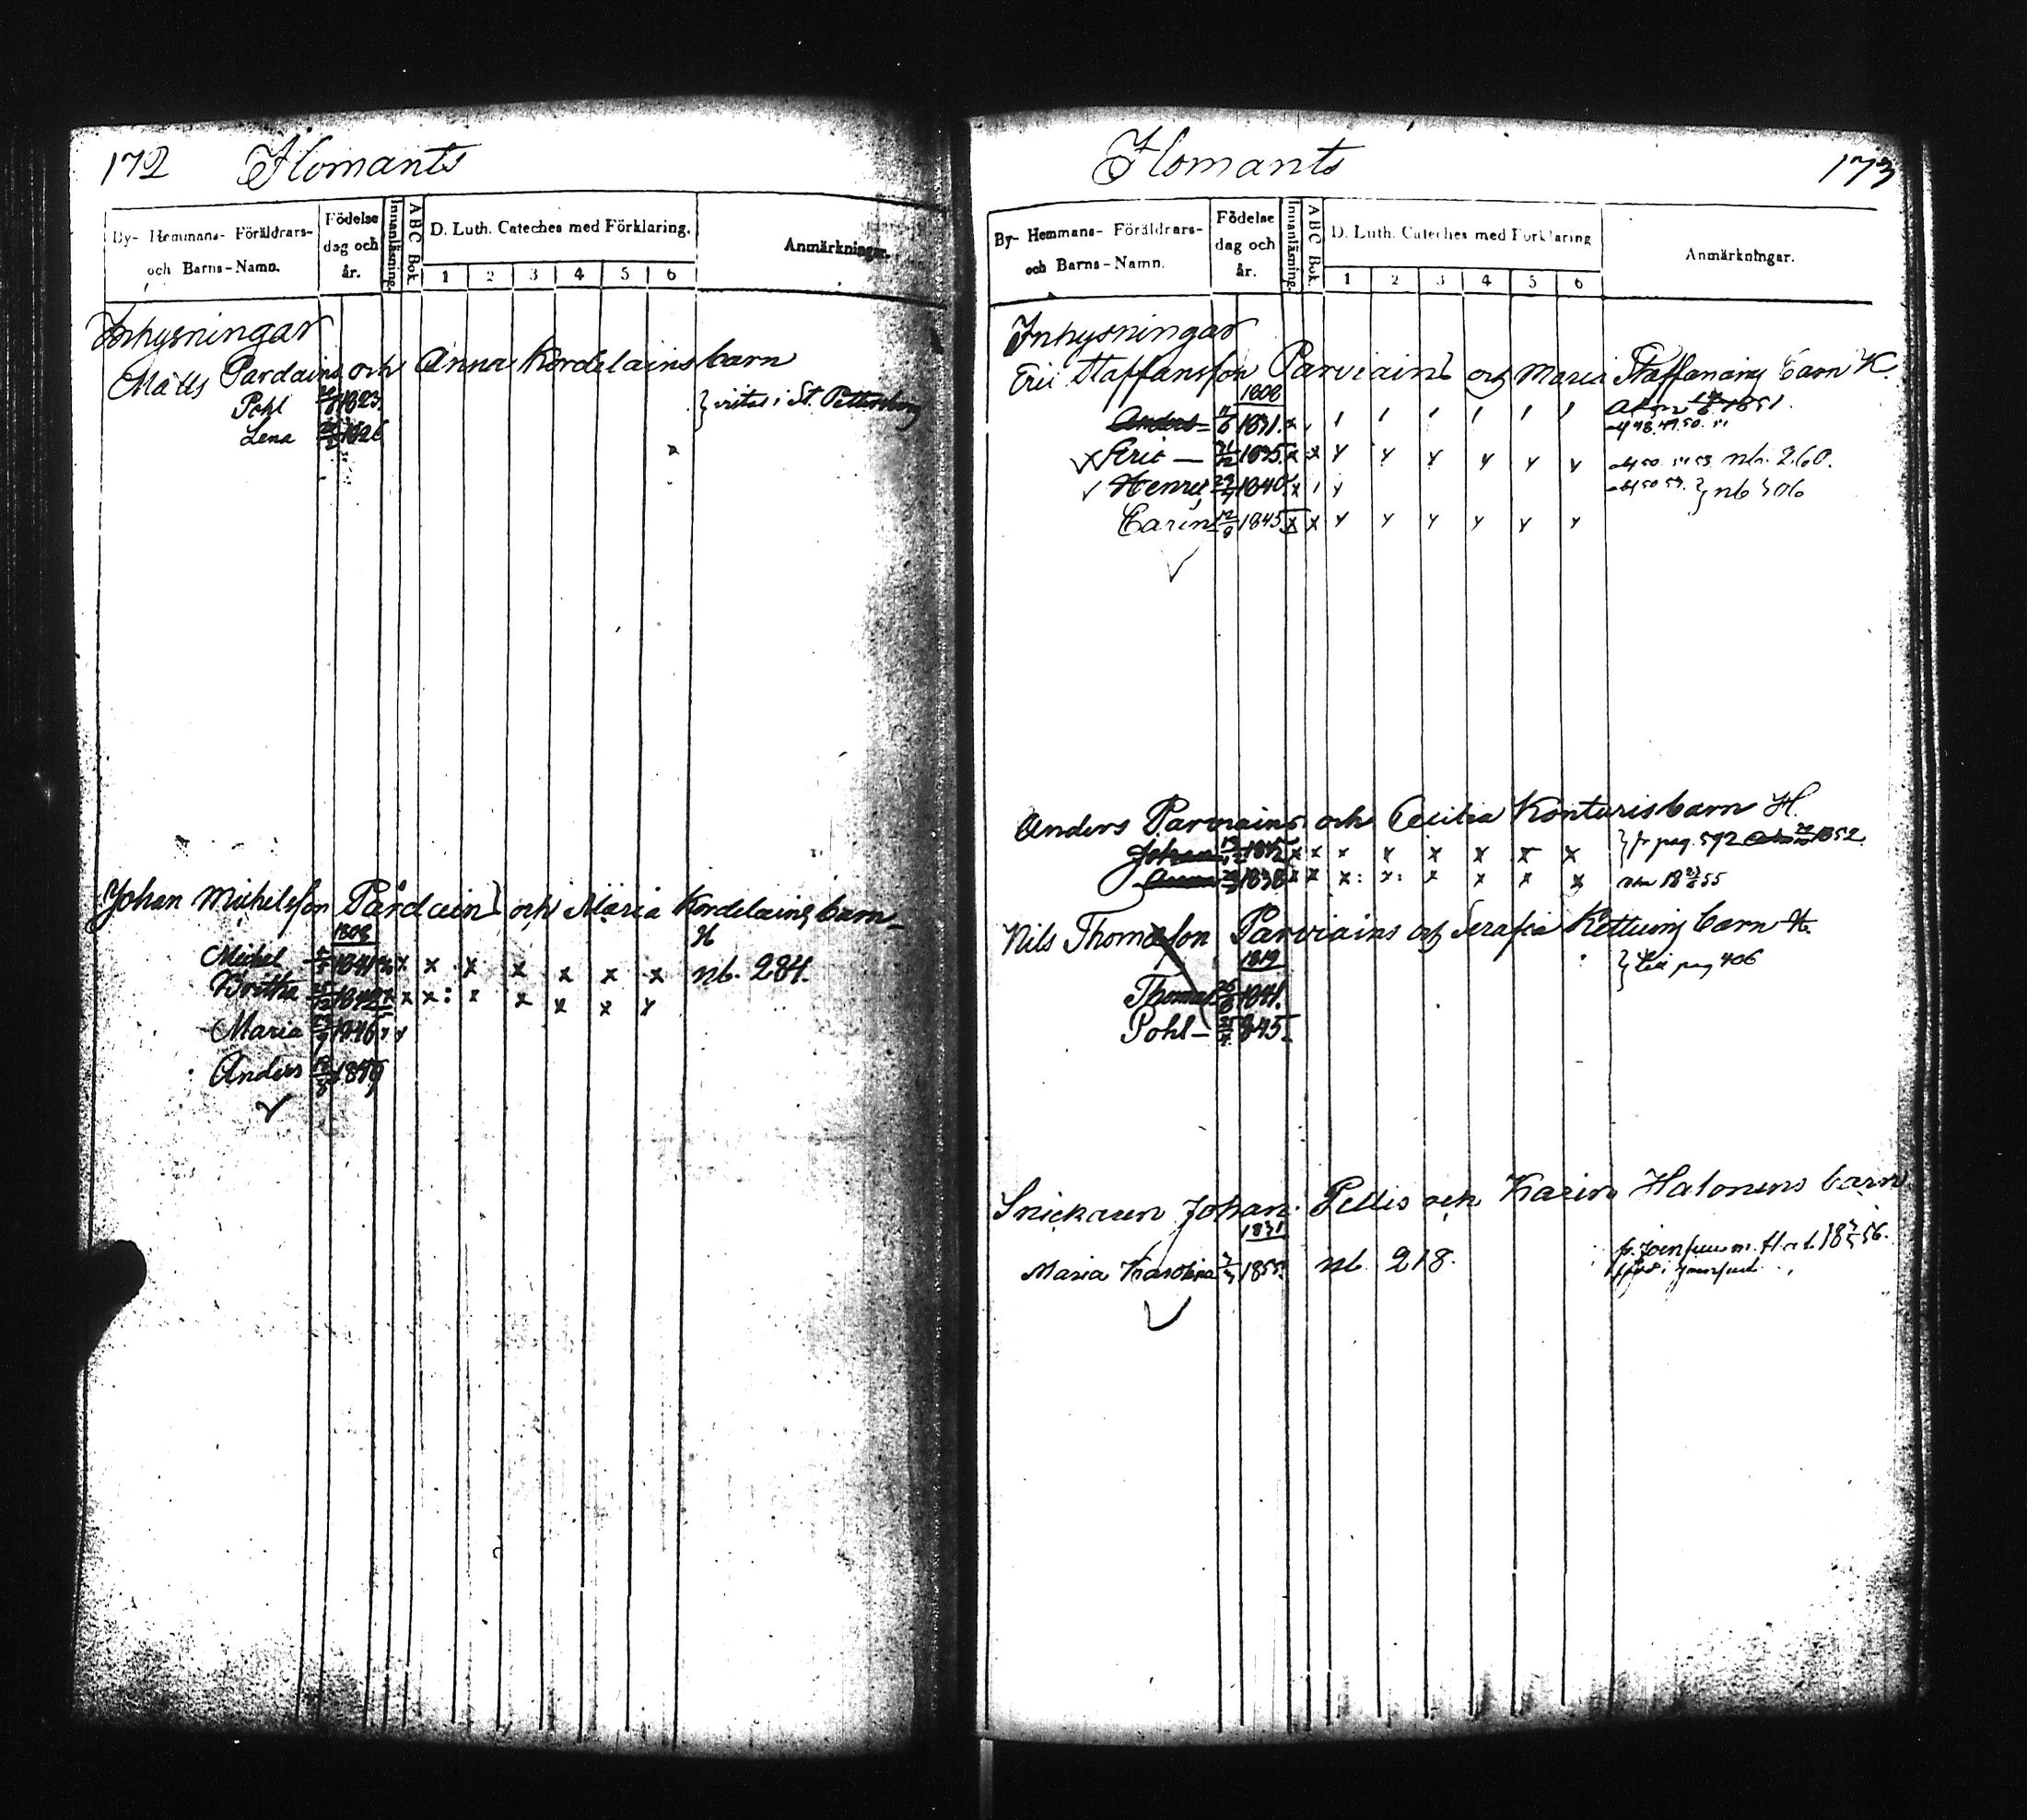 172 Ilomants
By- Hemmans- Föräldrars- och Barns-Namn. Födelse dag och år. Innanläsning. ABC Bok. D. Luth. Cateches med Förklaring. 1 2 3 4 5 6 Anmärkningar.
Inhysningar
Matts Pardains och Anna Kordelains barn
Pohl 1823 vistas i St. Petersburg
Lena 1826
Johan Michelsson Pardain och Maria Kordelains barn
1808 H
Michel 1841 x x x x x x x nb. 284.
Bretha 1842 x x x: x x x x x
Maria 1846
Anders 1849
Ilomants 173
By- Hemmans- Föräldrars- och Barns-Namn. Födelse dag och år. Innanläsning. ABC Bok. D. Luth. Cateches med Förklaring 1 2 3 4 5 6 Anmärkningar.
Inhysningar
Eric Staffansson Parviain och Maria barn K.
1808
Anders 1831. x 1851.
48. 49. 50.
Eric — 1835 x x nb. 260.
Henric 1840. x nb 306
Carin 12/9 1845 x x
Anders Parviains och Cecilia Konturis barn H.
Johan 1842 x x x x x x x x fr pag. 592 1852
Anna 1838 x x x: x: x x x x 55
Nils Thomasson Parviains och Serafia Kettuns barn H.
1819 pag 406
Thomas 1841.
Pohl — 1845
Snickaren Johan Pellis och Karin Halonens barn
1831
Maria Karolina 1855. nb. 218. fr. Joensuu 56.
född i Joensuu